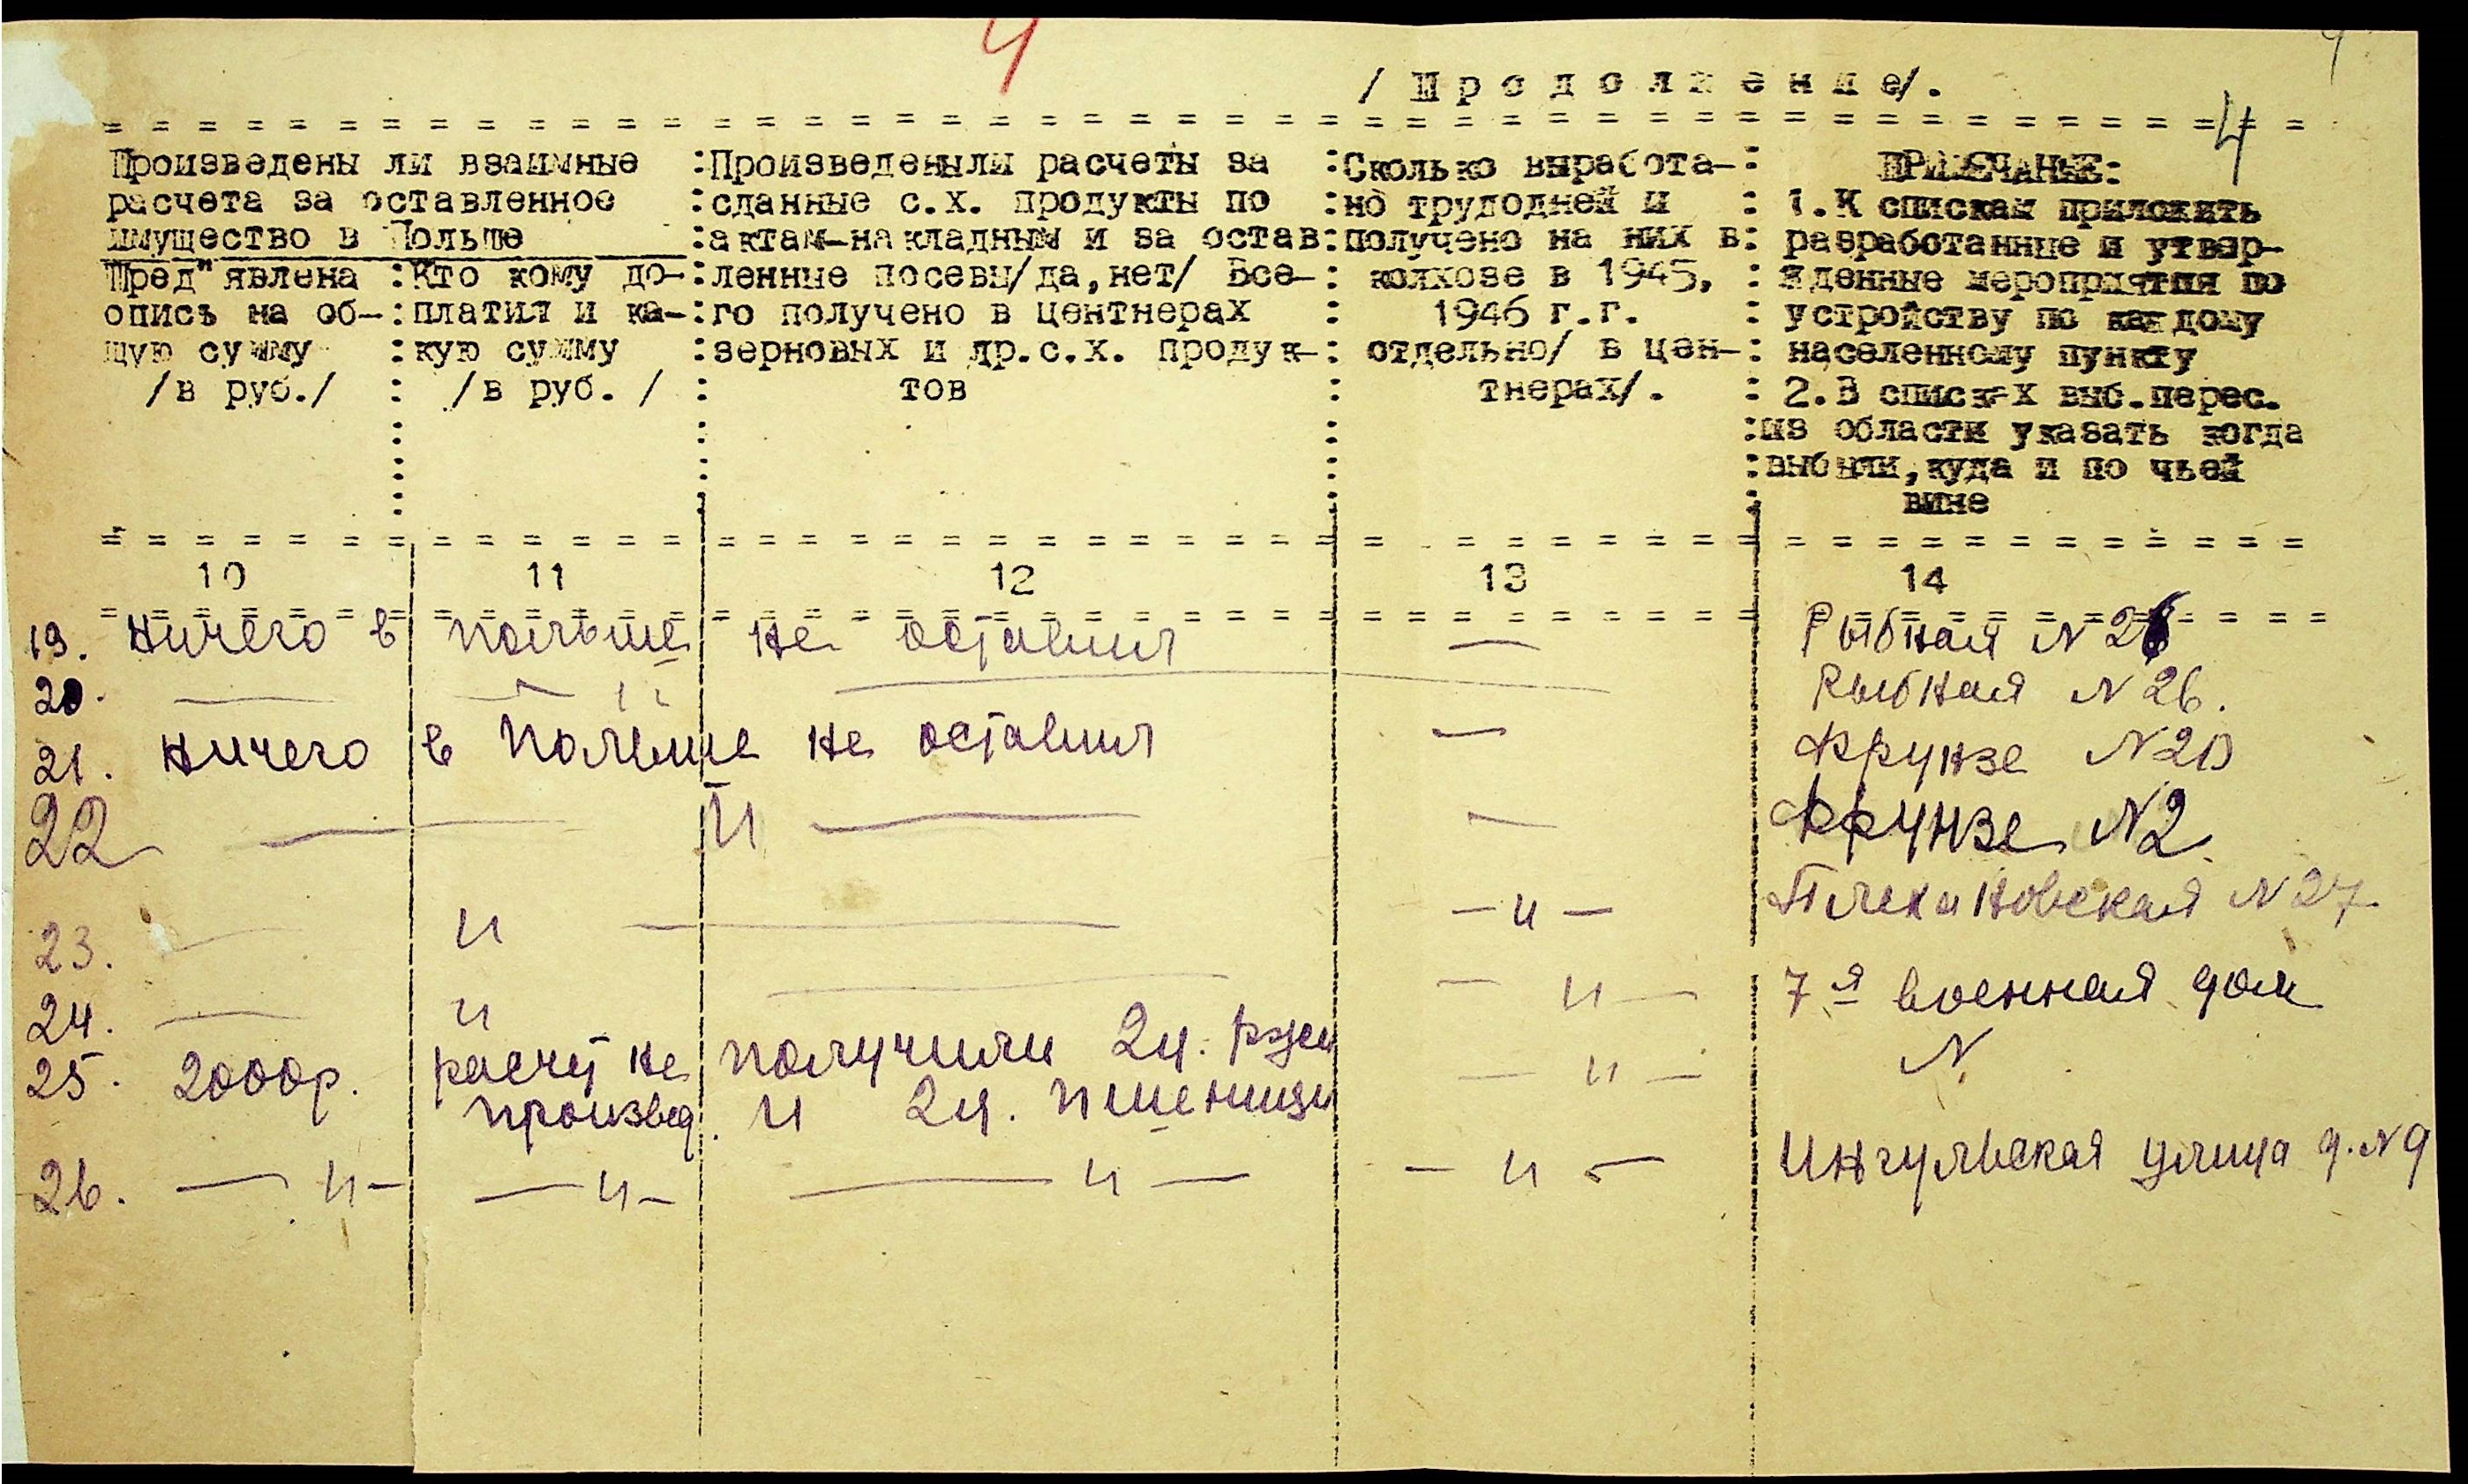 4
/ П р о д о л ж е н и е/.
= = = = = = = = = = = = = = = = = = = = = = = = = = = = = = = = = = = = = = = = = = = = = = = =
4
Произведены ли взаимные :Произведены ли расчеты за :Сколько выработа-: ПРИМЕЧАНИЕ:
расчета за оставленное :сданные с.х. продукты по :но трудодней и : 1.К спискам приложить
имущество в Польше :актам-накладным и за остав:получено на них в: разработанные и утвер-
Пред"явлена :Кто кому до-:ленные посевы/да,нет/ Все-: колхозе в 1945, : жденные мероприятия по
опись на об-:платил и ка-:го получено в центнерах : 1946 г.г. : устройству по каждому
щую сумму :кую сумму :зерновых и др.с.х. продук-: отдельно/ в цен-: населенному пункту
/в руб./ : /в руб. / : тов : тнерах/. : 2.В списках выб.перес.
:из области указать когда
:выбыли,куда и по чьей
вине
= = = = = = = = = = = = = = = = = = = = = = = = = = = = = = = = = = = = = = = = = = = = = = = =
10 11 12 13 14
= = = = = = = = = = = = = = = = = = = = = = = = = = = = = = = = = = = = = = = = = = = = = = = =
19. Ничего в Польше не оставил — Рыбная N 26
20. — " — Рыбная N 26.
21. Ничего в Польше не оставил — Фрунзе N 20
22 — " — — Фрунзе N2.
23. — " — — " — Плехановская N 27.
24. — " — — " — 7я военная дом
25. 2000р. расчет не получили 2ц. ржи — " — N
произвед. и 2ц. пшеницы
26. — " — — " — — " — — " — Ингульская улица д. N 9